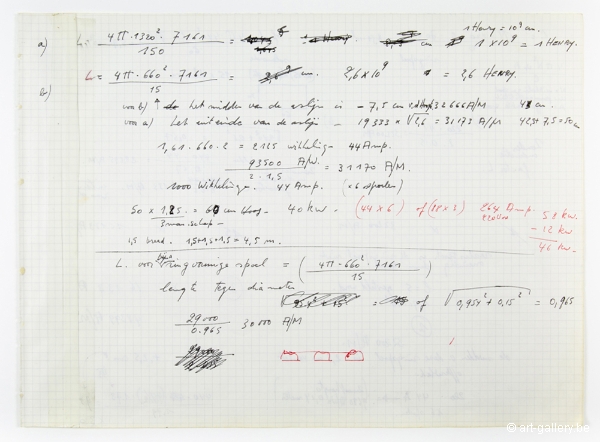 1 Henry = 10⁹ cm.
a) L = 4π · 1320² · 7161 / 150 = cm 1 x 10⁹ = 1 HENRY.
b) L = 4π · 660² · 7161 / 15 = cm. 2,6 x 10⁹ = 2,6 HENRY.
voor b) het midden van de as is - 7,5 cm 32666 A/M cm.
voor a) het uiteinde van de as - 19333 x √2,6 = 31173 A/M 42,5+7,5=50 cm
1,61 · 660 · 2 = 2125 wikkeling - 44 Amp.
93500 A/W. / 2 · 1,5 = 31170 A/M.
1000 Wikkelingen. 44 Amp. (x6 spoelen)
50 x 1,25 = 60 cm hoog - 40 kw - (44 x 6) of (88 x 3) 264 Amp. 58 kw.
220 - 12 kw
46 kw.
1,5 breed. 1,5+1,5+1,5 = 4,5 m.
L. voor ringvormige spoel = (4π · 660² · 7161 / 15)
lengte tegen diameter
= of √0,954² + 0,15² = 0,965
29000 / 0.965 30000 A/M
© art-gallery.be